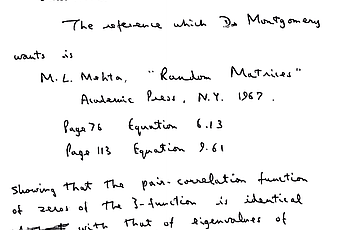 The reference which Dr Montgomery
wants is
M. L. Mehta, "Random Matrices"
Academic Press, N.Y. 1967.
Page 76 Equation 6.13
Page 113 Equation 9.61
Showing that the pair-correlation function
of zeros of the ζ-function is identical
with that of eigenvalues of